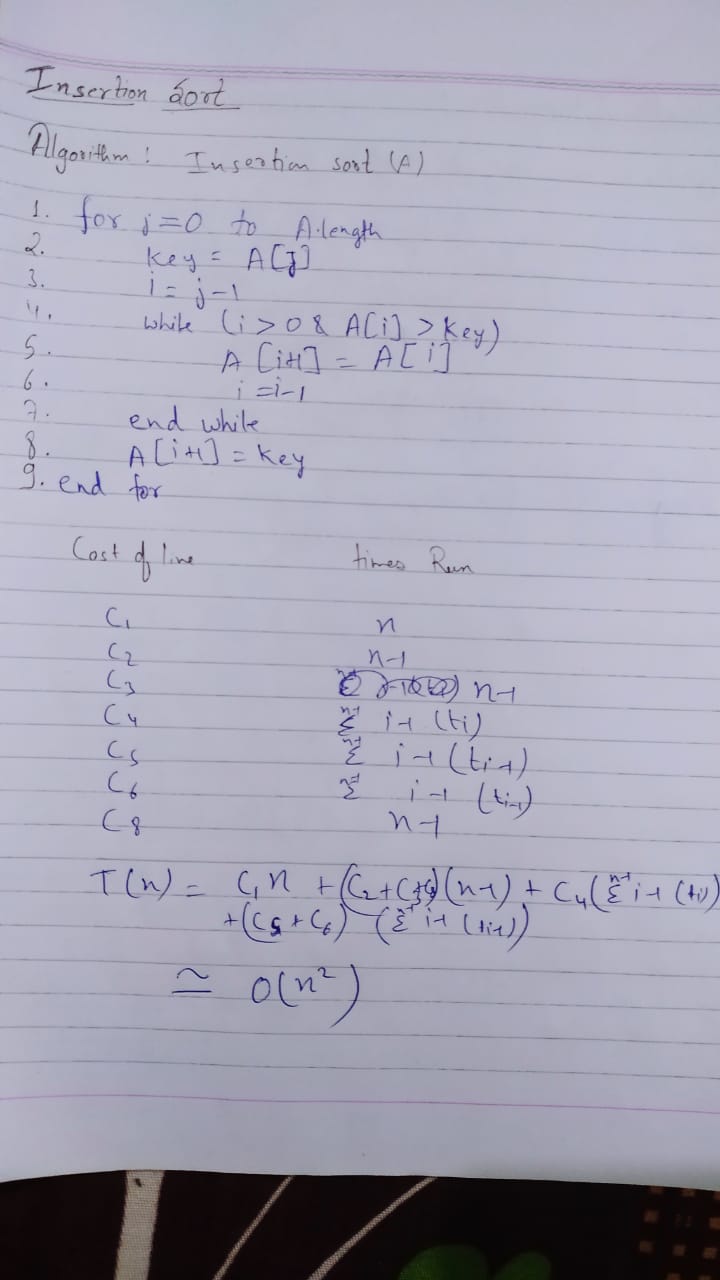 Insertion Sort
Algorithm : Insertion sort (A)
1. for j=0 to A.length
2. key = A[j]
3. i = j-1
4. while (i>0 & A[i] > key)
5. A[i+1] = A[i]
6. i=i-1
7. end while
8. A[i+1] = key
9. end for
Cost of line times Run
C1 n
C2 n-1
C3 n-1
C4 Σ i-1 (ti)
C5 Σ i-1 (ti-1)
C6 Σ i-1 (ti-1)
C8 n-1
T(n) = C1n + (C2+C3 (n-1) + C4(Σ i-1 (ti))
+(C5+C6) (Σ i-1 (ti-1))
≃ O(n²)